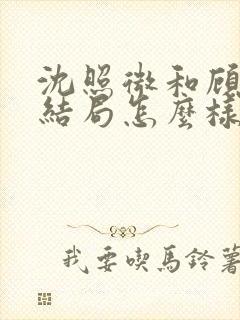 沈照微和顾
结局怎麼樣
我要喫馬鈴薯